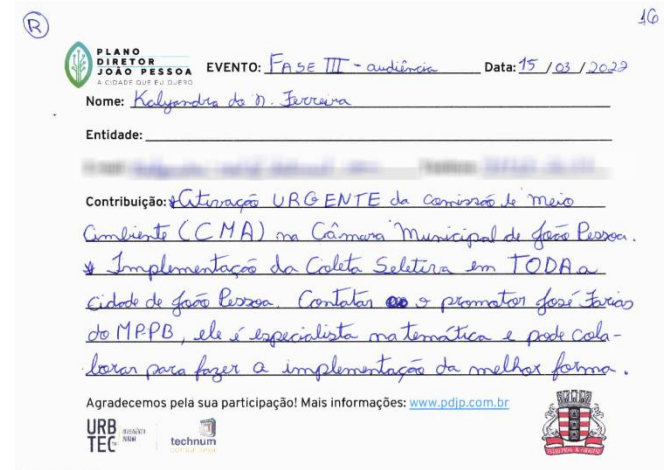 R
16
PLANO
DIRETOR
JOÃO PESSOA
A CIDADE QUE EU QUERO
EVENTO: FASE III - audiência Data: 15 / 03 / 2022
Nome: Kalyandra do N. Ferreira
Entidade:
Contribuição: * Ativação URGENTE da comissão de meio
ambiente (CMA) na Câmara Municipal de João Pessoa.
* Implementação da Coleta Seletiva em TODA a
cidade de João Pessoa. Contatar o promotor José Farias
do MPPB, ele é especialista na temática e pode cola-
borar para fazer a implementação da melhor forma.
Agradecemos pela sua participação! Mais informações: www.pdjp.com.br
URB
TEC
technum